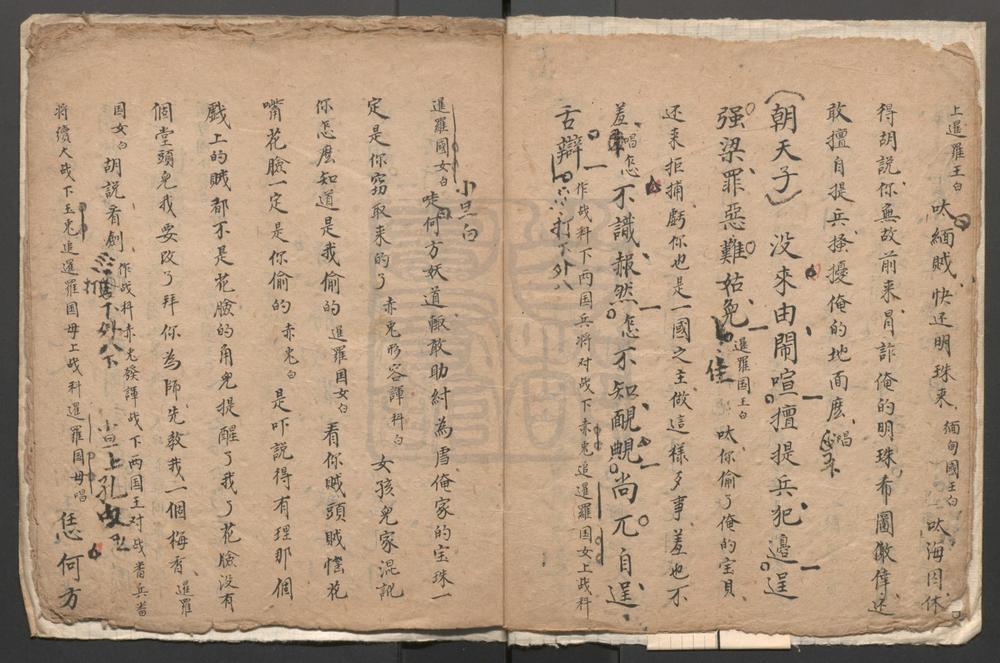 上暹羅王白 呔緬賊快还明珠来 緬甸國王白 呔海囚休
得胡説你無故前来冐詐俺的明珠布圖徼倖还
敢擅自提兵搔擾俺的地面麽 唱
（朝天子）没來由閙喧擅提兵犯邊逞
强梁罪惡難姑免 暹羅国王白 呔你偷了俺的宝貝
还来拒捕虧你也是一國之主做這樣多事羞也不
羞 唱 怎不識報然怎不知靦覥尚兀自逞
舌辯 作战科下兩国兵將对战下赤児追暹羅国女上战科
打下外八
暹羅國女白 小旦白 唗何方妖道輙敢助紂為虐俺家的宝珠一
定是你窃取来的了 赤児形容諢科白 女孩兒家混説
你怎麽知道是我偷的 暹羅国女白 看你賊頭賊惱花
嘴花臉一定是你偷的 赤児白 是吓説得有理那個
戲上的賊都不是花臉的角児提醒了我了花臉没有
個堂頭児我要改了拜你為師先教我一個梅香 暹羅
国女白 胡説看劍 作战科赤児發諢战下兩国王对战畨兵畨
下外八下
将續大战下玉児追暹羅国母上战科暹羅国母唱 恁何方
小旦上